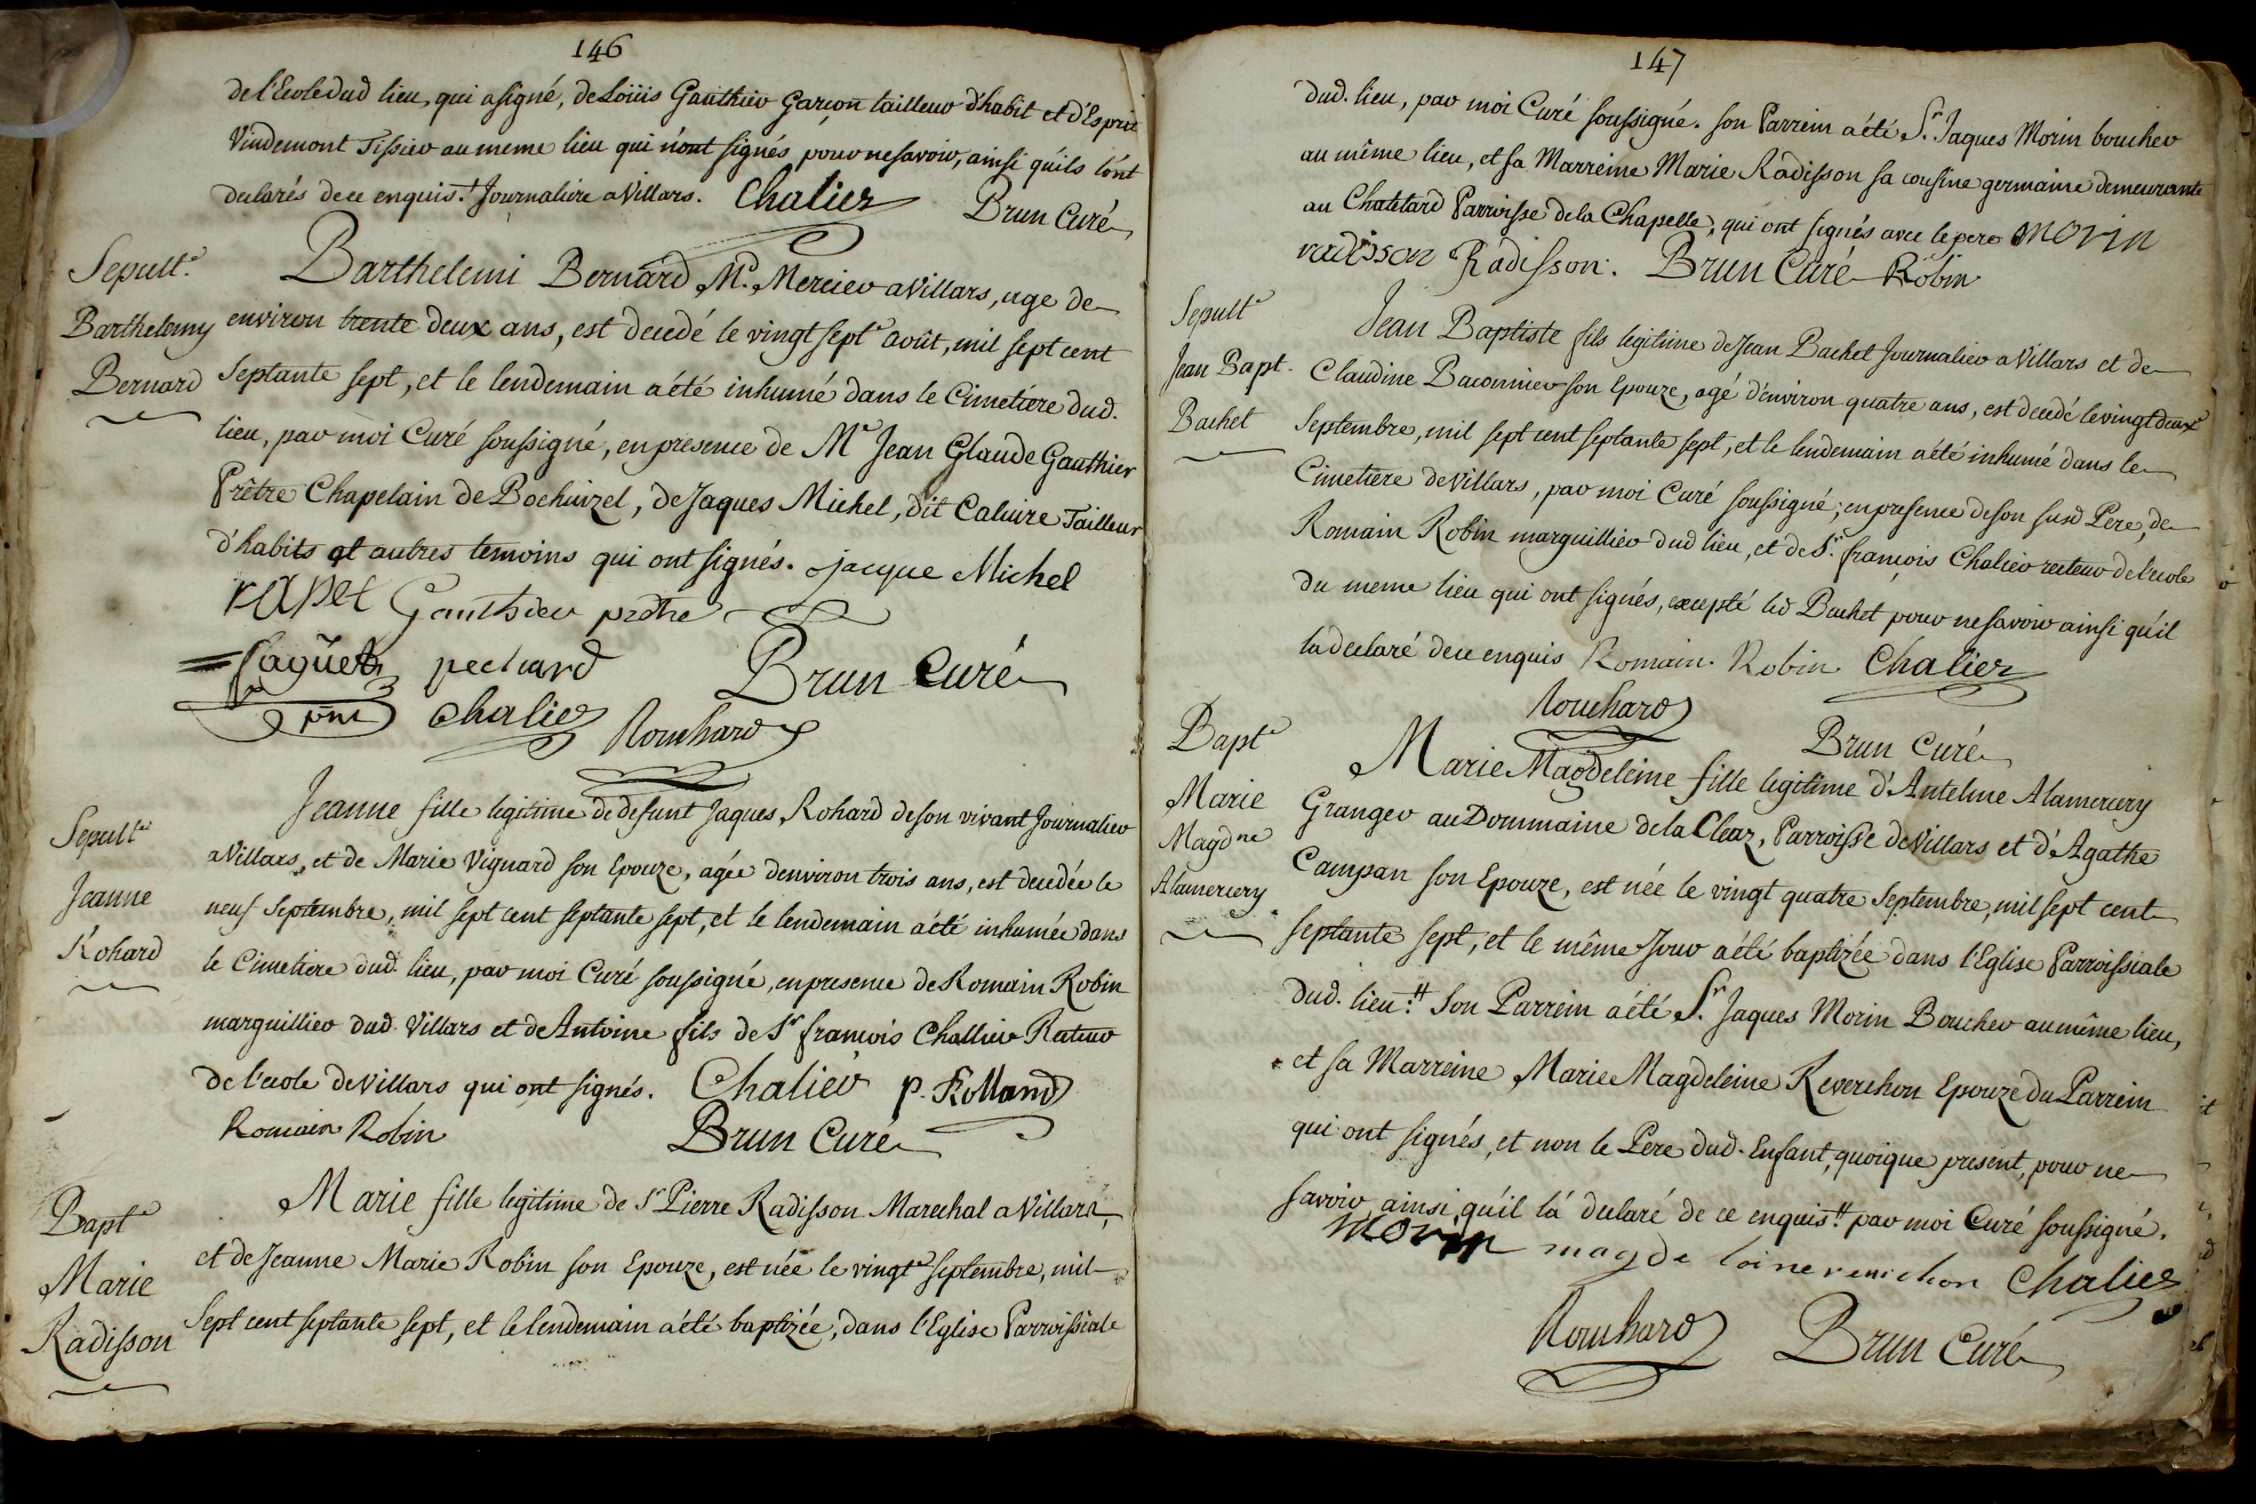 146
de l'Ecole dud lieu, qui a signé, de Loüis Gauthier Garçon tailleur d'habit et d'Esprit
Vindemont Tissier au meme lieu qui n'ont signés pour ne savoir, ainsi qu'ils l'ont
declarés de ce enquis. Journaliere a Villars. Chalier Brun Curé
Sepult.e
Barthelemy
Bernard
Barthelemi Bernard M.d Mercier a Villars, age de
environ trente deux ans, est decedé le vingt sept.e août, mil sept cent
Septante sept, et le lendemain a été inhumé dans le Cimetiere dud.
lieu, par moi Curé soussigné, en presence de M.e Jean Glaude Gauthier
Prêtre Chapelain de Bochuizel, de Jaques Michel, dit Caluire Tailleur
d'habits et autres temoins qui ont signés. jacque Michel
rapet Gauthier prêtre
pechard Brun Curé
Chalier Rouchard
Sepult.e
Jeanne
Rohard
Jeanne fille legitime de defunt Jaques Rohard de son vivant Journalier
a Villars, et de Marie Vignard son Epouze, agée denviron trois ans, est decedée le
neuf Septembre, mil sept cent septante sept, et le lendemain a été inhumée dans
le Cimetiere dud. lieu, par moi Curé soussigné, en presence de Romain Robin
marguillier dud. Villars et de Antoine fils de S.r françois Challier Recteur
de l'ecole de Villars qui ont signés. Chalier p. Rolland
Romain Robin Brun Curé
Bapt.e
Marie
Radisson
Marie fille legitime de S.r Pierre Radisson Marechal a Villars,
et de Jeanne Marie Robin son Epouze, est née le vingt.e septembre, mil
Sept cent septante sept, et le lendemain a été baptizée, dans l'Eglise Parroissiale
147
dud. lieu, par moi Curé soussigné. son Parrein a été S.r Jaques Morin boucher
au même lieu, et sa Marreine Marie Radisson sa cousine germaine demeurante
au Chatelard Parroisse de la Chapelle, qui ont signés avec le pere morin
radisson Radisson. Brun Curé Robin
Sepult.e
Jean Bapt.
Bachet
Jean Baptiste fils legitime de Jean Bachet Journalier a Villars et de
Claudine Baconnier son Epouze, agé d'environ quatre ans, est decedé le vingt deux.e
Septembre, mil sept cent septante sept, et le lendemain a été inhumé dans le
Cimetiere de Villars, par moi Curé soussigné; en presence de son susd Pere, de
Romain Robin marguillier dud lieu, et de S.r françois Chalier recteur de l'ecole
du meme lieu qui ont signés, excepté led Bachet pour ne savoir ainsi qu'il
la declaré de ce enquis Romain. Robin Chalier
Rouchard Brun Curé
Bapt.e
Marie
Magd.ne
Alamercery
Marie Magdeleine fille legitime d'Antelme Alamercery
Granger au Dommaine de la Cleaz, Parroisse de Villars et d'Agathe
Campan son Epouze, est née le vingt quatre Septembre, mil sept cent
septante sept, et le même Jour a été baptizée dans l'Eglise Parroissiale
dud. lieu.# Son Parrein a été S.r Jaques Morin Boucher au même lieu,
et sa Marreine Marie Magdeleine Reverchon Epouze du Parrein
qui ont signés, et non le Pere dud. Enfant, quoique present, pour ne
savoir, ainsi qu'il l'a declaré de ce enquis.# par moi Curé soussigné.
morin magdeloine reverchon Chalier
Rouchard Brun Curé